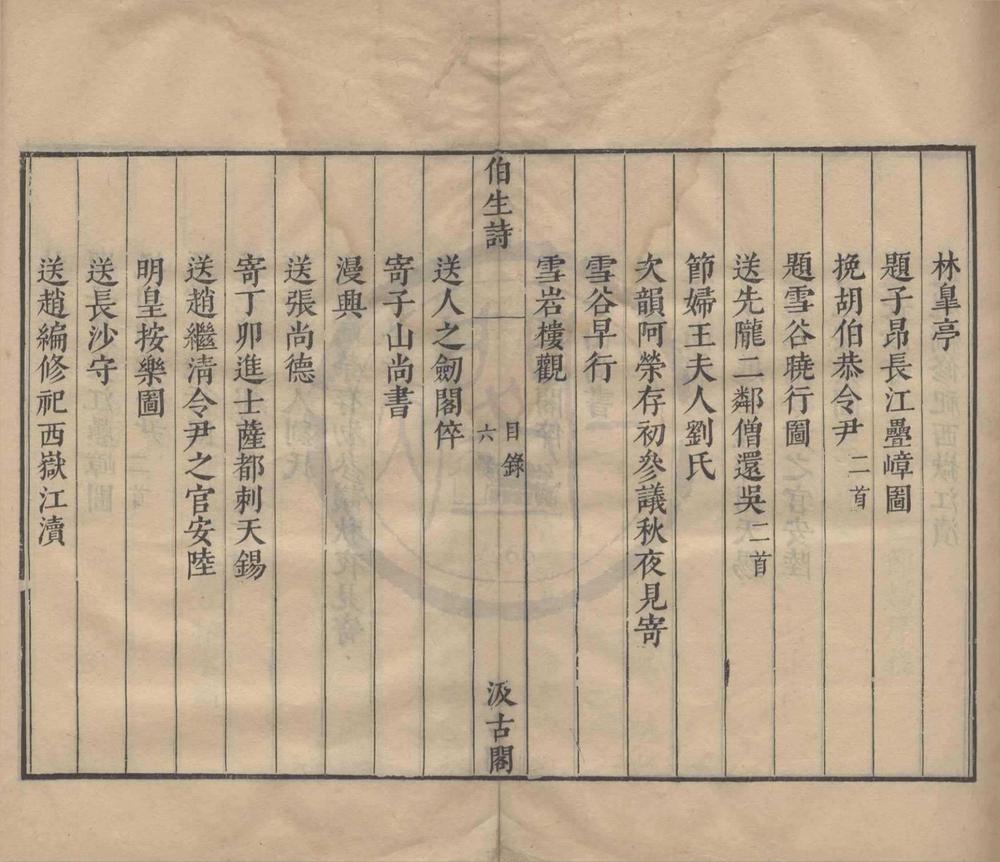 林臯亭
題子昂長江疊嶂圖
挽胡伯恭令尹二首
題雪谷曉行圖
送先隴二鄰僧還吳二首
節婦王夫人劉氏
次韻阿榮存初參議秋夜見寄
雪谷早行
雪岩樓觀
伯生詩
目錄
六
汲古閣
送人之劒閣倅
寄子山尚書
漫興
送張尚德
寄丁卯進士薩都剌天錫
送趙繼清令尹之官安陸
明皇按樂圖
送長沙守
送趙編修祀西嶽江瀆